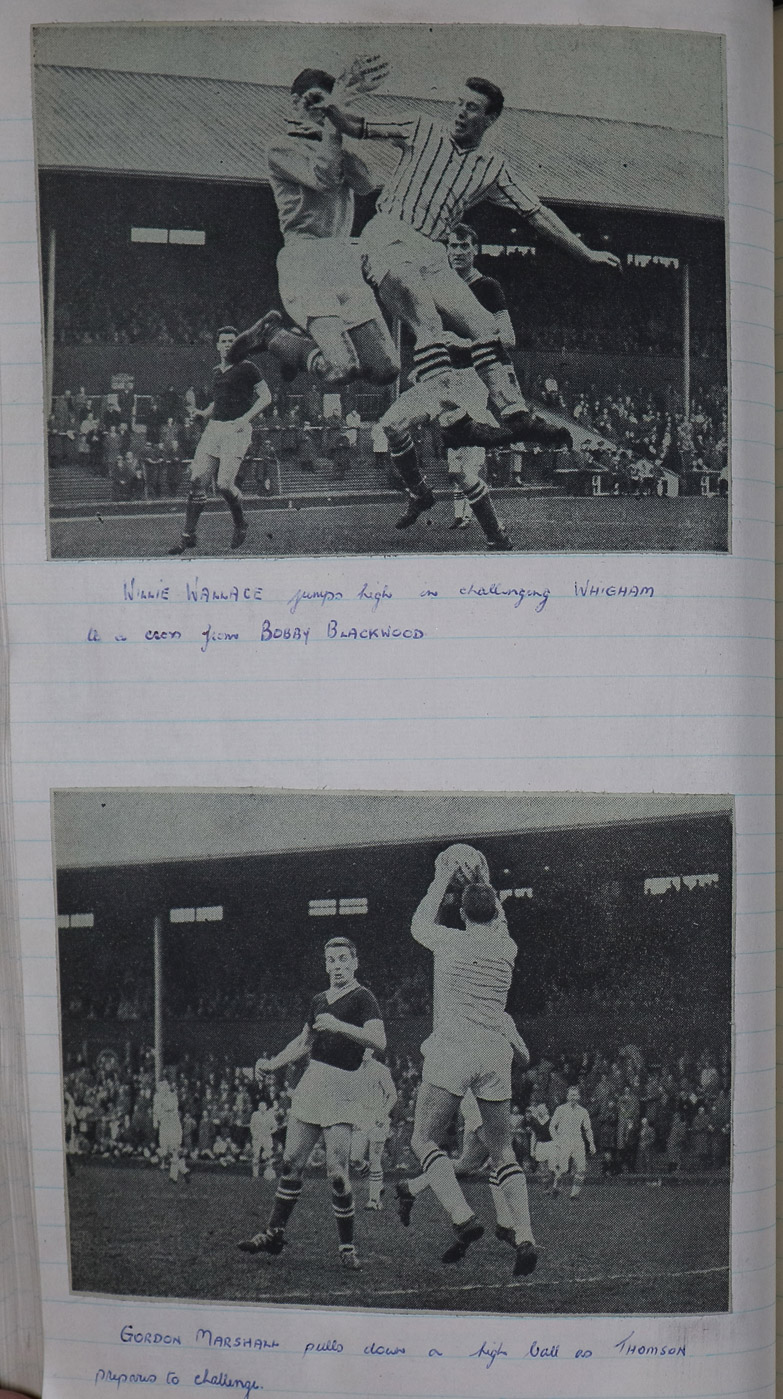 WILLIE WALLACE jumps high in challenging WHIGHAM
to a cross from BOBBY BLACKWOOD
GORDON MARSHALL pulls down a high ball as THOMSON
prepares to challenge.